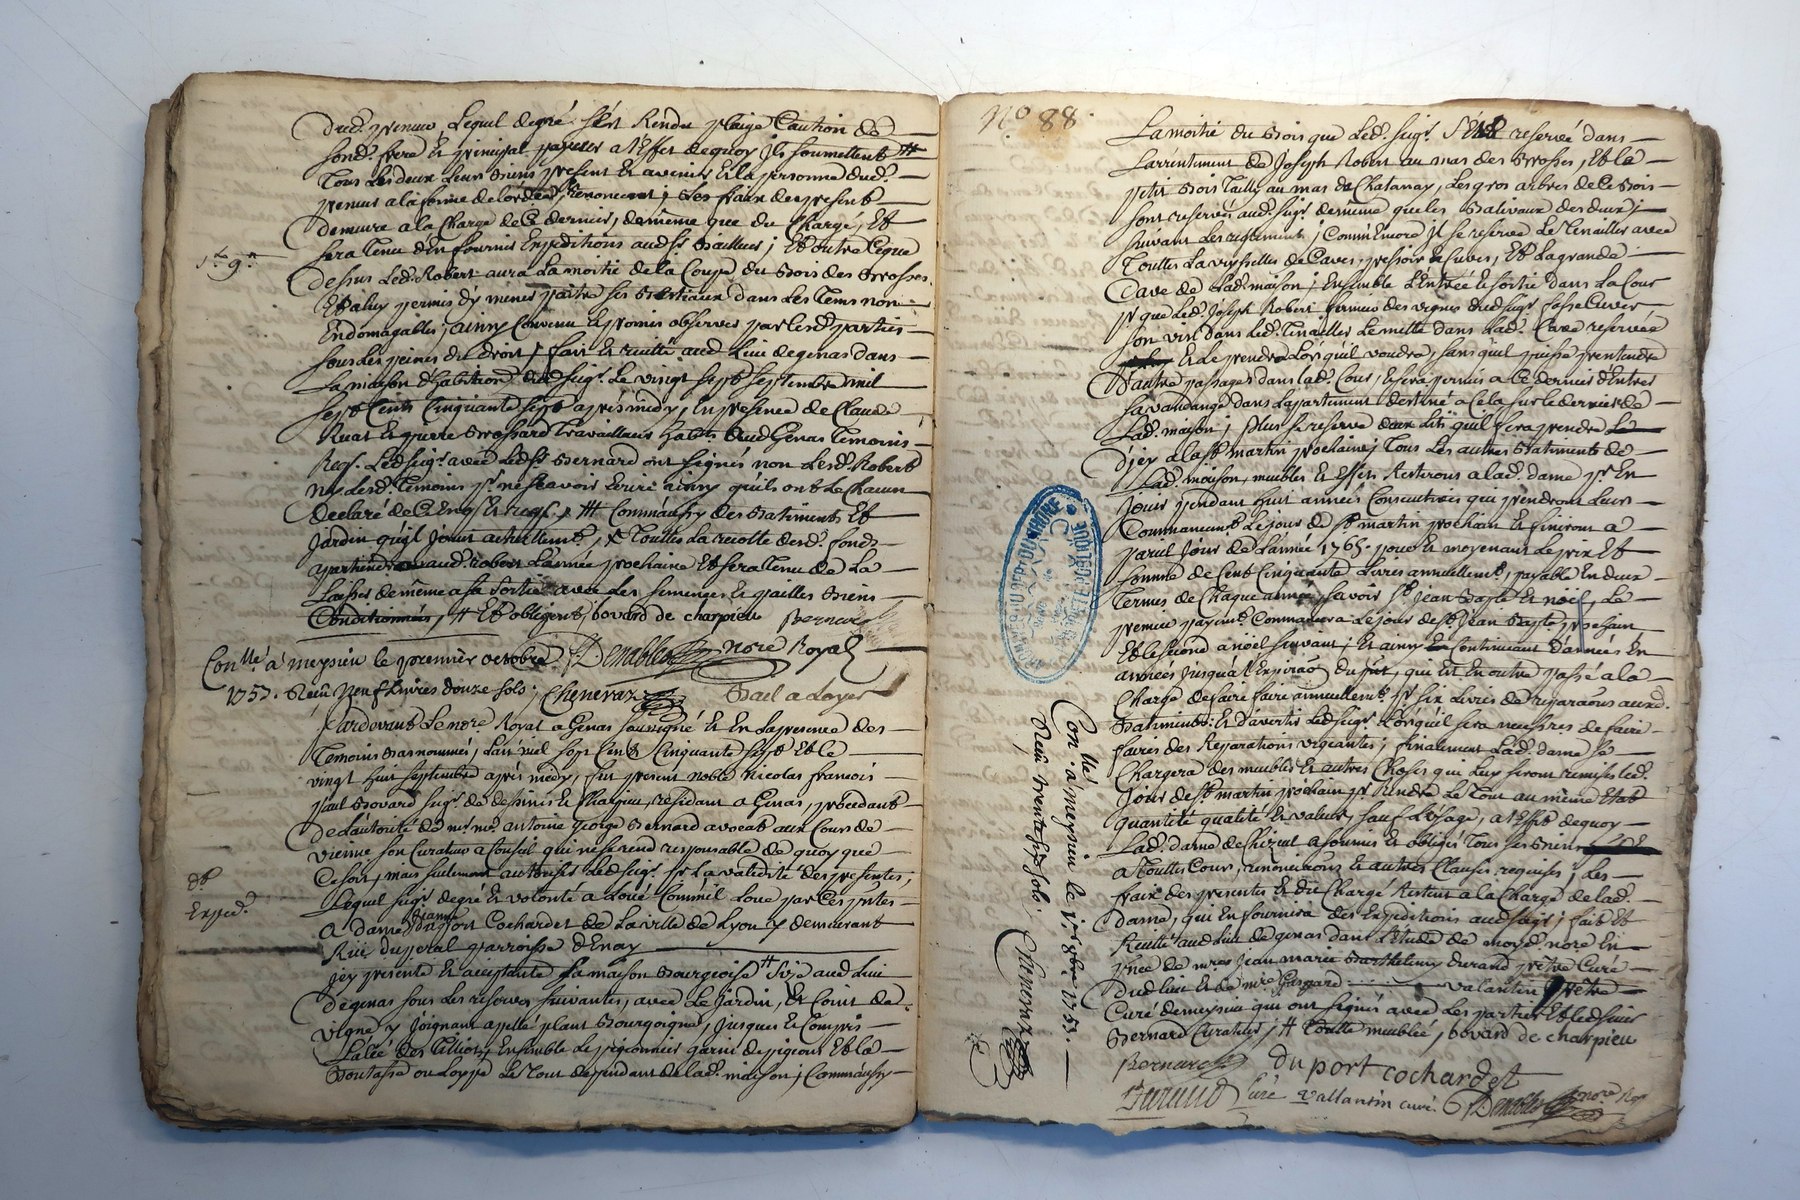 dud. premier Lequel degré s'est Rendu plaige Caution de
sond. frere et principal payeur a l'effet dequoy ils soumettent #
Tous Les deux leurs biens present et avenir et la personne dud.
premier a la forme de lordce, Renoncent; Les frais des present
demeure a la Charge de Ce dernier, demême que du Chargé, et
sera Tenu d'En fournir Expeditions aud. sr Bailleur; et outre Ceque
dessus Led. Robert aura La moitié de la Coupe du Bois des Brosses
Et a luy permis d'y mener paitre ses Bestiaux dans Les Tems non
Endomagables; ainsy Convenu et promis observer par lesd. parties
sous les peines du droit; fait et recitté aud. Lieu degenas dans
La maison d'habitaon dud. seigr. Le vingt sept septembre mil
sept Cents Cinquante sept après midy, En presence de Claude
Ruat et pierre Brossard Travailleurs habts dud Genas Temoins
Reqs. Led. seigr. avec Led. sr Bernard ont signés non Lesd. Robert
ny Lesd. Temoins pr. ne scavoir Ecrire ainsy qu'ils ont Le Chacun
declaré de Ce Enqs et reqs. # Comm'aussy des Batiments Et
Jardin qu'il Jouit actuellemt., & Touttes La recolte desd. fonds
apartiendra aud. robert L'année prochaine Et sera Tenu de La
Laisser de même a sa sortie avec Les semences et pailles Biens
Conditionnées, # Et obligent, bovard de charpieu Bernard
Denables nore Royal
Conllé a meysieu le premier octobre
1757. Reçu Neuf Livres douze sols; Chenevaz
Bail a Loyer
Pardevant Le nore. Royal a Genas soussigné et En la presence des
Temoins Basnommés, L'an mil sept Cent Cinquante sept Et le
vingt huit septembre après midy; fut present noble Nicolas francois
paul Bovard seigr. de & Charpieu, residant a Genas, procedant
de L'autorité de mr. me. antoine george Bernard avocat aux Cours de
vienne son Curateur a Conseil qui ne se rend responsable de quoy que
Ce soit, mais seulement autorise Led. seigr. pr. La validité des presentes;
Lequel seigr. degré et volonté a Loué Comm'il Loue par Ces pntes.
A dame jeanne duport Cochardet de La ville de Lyon y demeurant
Rüe dupeyrat parroisse d'Enay
jcy presente et acceptante La maison Bourgeoise # Size aud. Lieu
degenas sous Les reserves suivantes, avec Le Jardin, Et Coint de
vigne y Joignant apellé plant Bourgoigne, Jusques et Compris
L'alée des Tilliots, Ensemble Le pigeonnier garni de pigeons Et la
Boutasse ou Loyge Le Tout dependant de lad. maison; Comm'aussy
dt
Exped.
No 88.
La moitié du Bois que Led. seigr. s'Est reservé dans
L'arrentement de Joseph Robert au mas des Brosses, Et le
petit Bois Tailly au mas de Chatanay, Les gros arbres de Ce Bois
sont reservés aud. seigr. demême queles Balivaux des deux;
suivant Les reglements; Comm'Encore il se reserve Le Tenailler avec
Touttes La veysselles de Caves, pressoir & Cuves, Et La grande
Cave de Lad. maison; Ensemble L'Entrée et sortie dans La Cour
pr que Led. Joseph Robert fermier des vignes dud. seigr. fasse Cuver
son vin dans Led. Tinailler Le mette dans Lad. Cave reservée
Et Le prendre Lors qu'il voudra, sans qu'il puisse pretendre
D'autre passages dans lad. Cour, Et sera permis a Ce dernier d'Entrer
sa vandange dans L'apartement destiné a Cela sur le derrier de
Lad. maison; plus se reserve deux Lits qu'il fera prendre
D'jcy a la st. martin prochaine; Tous Les autres Batiments de
Lad. maison, meubles et effets Resterons a lad. dame pr. En
Jouir pendant huit années Consecutives qui prendront Leurs
Commancemt. Le jour de st. martin prochain et finirons a
pareil Jour de L'année 1765. pour et moyenant Le prix Et
somme de Cent Cinquante Livres annuellemt., payable En deux
Termes de Chaque année, savoir st. Jean Bapte et noël, Le
premier payemt. Commancera Le jour de st. Jean Bapte. prochain
Et le second a noël suivant; Et ainsy Continuant d'années En
années jusqu'a L'Expiraon. du pnt. qui Est En outre passé a la
Charge de faire faire annuellemt. pr. six Livres de reparaons aux d.
Batiments: Et d'avertir Led. seigr. Lorsqu'il sera necessres. de faire
faires des Reparations urgeantes; finalement Lad. dame se
Chargera des meubles et autres Choses qui Luy serons remises Led.
Jour de st. martin prochain pr. Rendre Le Tout au même Etat
quantité qualité et valeur, sauf L'usage, a l'effet dequoy
Lad. dame a soumis et obligés Tous ses Biens
a Touttes Cours, renonciaons et autres Clauses requises; Les
frais des presentes et du Chargé Restent a la Charge de lad.
Dame, qui En fournira des Expeditions aud. seigr; fait Et
Recitté aud. Lieu de genas dans L'Etude de moyd. nore. En
pnce de mre. Jean marie Barthelemy Durand prêtre Curé
Dud. lieu et de mre Gaspard valantin prêtre
Curé de meysieu qui ont signés avec Les parties Et led. sieur
Bernard Curateur; # Toutte meublée, bovard de charpieu
Bernard duport cochardet
Durand Curé vallantin curé. Denables nore Roy
Conllé. a meysieu le pr. 8bre 1757.
Reçu trente six sols; Chenevaz
ARCHIVES DU DEP. DU RHONE